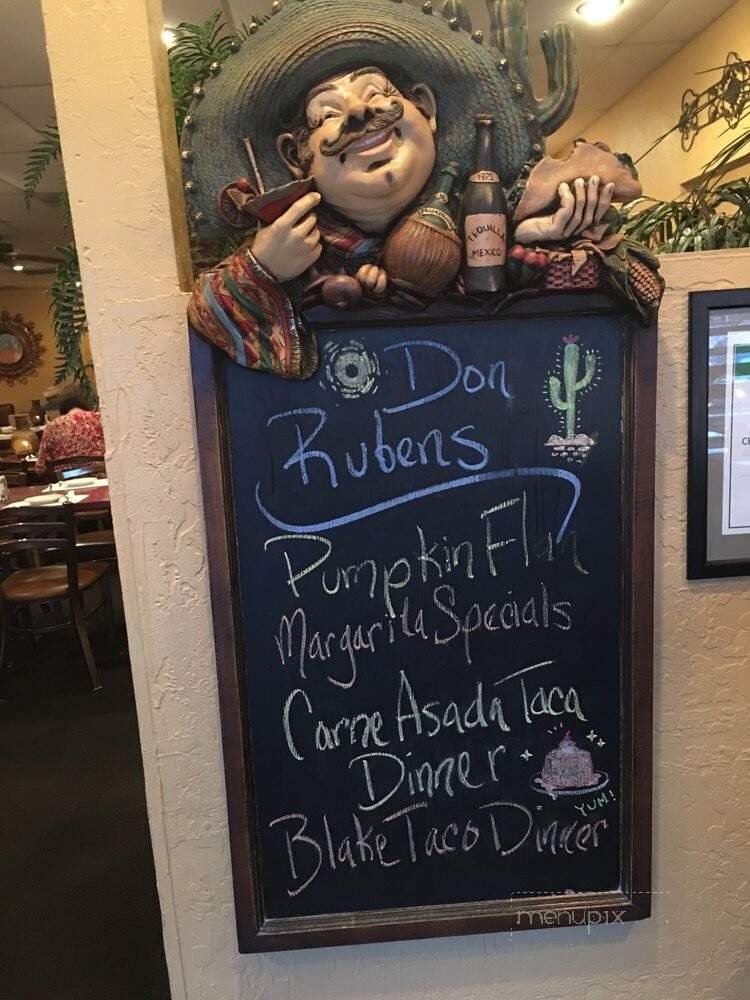 1975
TEQUILLA
MEXICO
Don
Rubens
Pumpkin Flan
Margarita Specials
Carne Asada Taca
Dinner
YUM!
Blake Taco Dinner
menupix